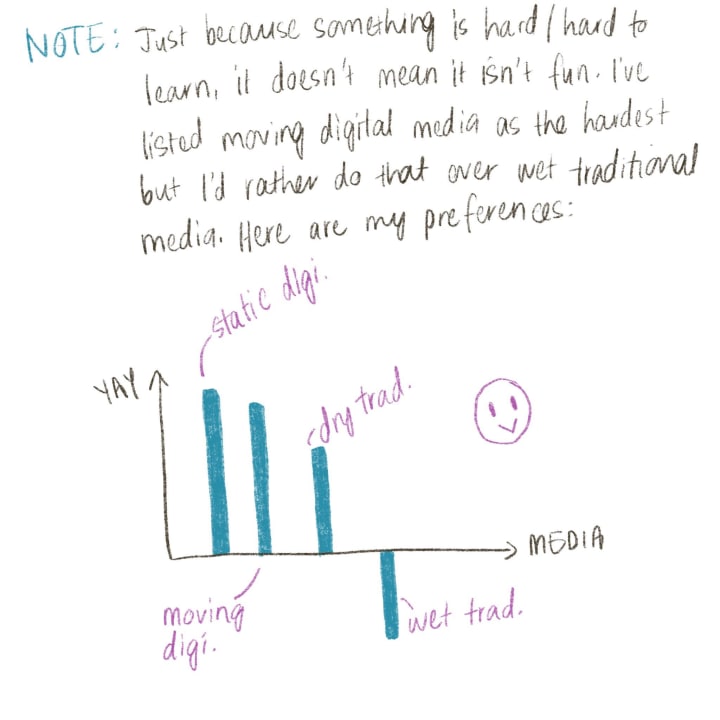 NOTE: Just because something is hard/hard to
learn, it doesn't mean it isn't fun. I've
listed moving digital media as the hardest
but I'd rather do that over wet traditional
media. Here are my preferences:
static digi.
YAY
dry trad.
MEDIA
moving
digi.
wet trad.